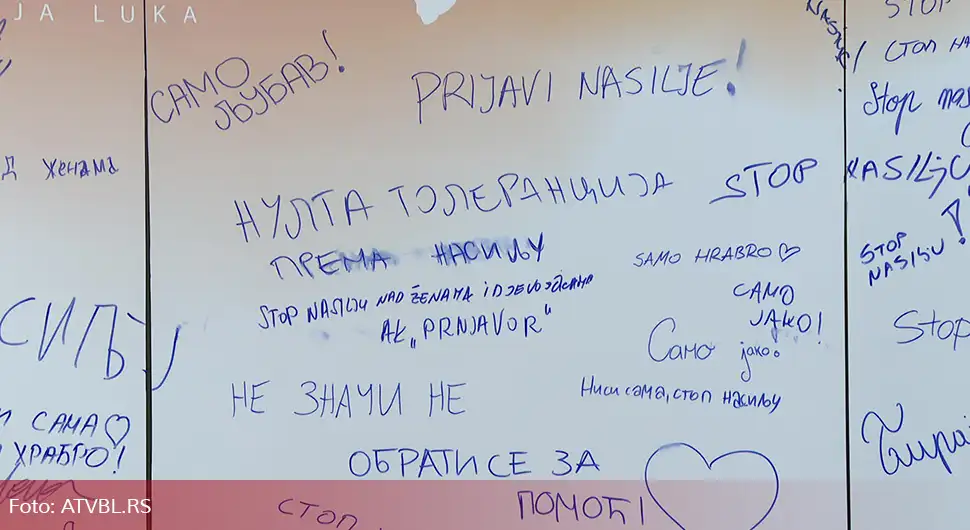 JA LUKA
Д женама
СИЉУ
САМА
ХРАБРО!
САМО
ЉУБАВ!
PRIJAVI NASILJE!
НУЛТА ТОЛЕРАНЦИЈА
ПРЕМА НАСИЉУ
STOP
STOP NASILJU NAD ŽENAMA I DJEVOJČICAMA
AK „PRNJAVOR"
SAMO HRABRO
САМО
ЈАКО!
Само јако.
НЕ ЗНАЧИ НЕ
Ниси сама, стоп насиљу
ОБРАТИ СЕ ЗА
ПОМОЋ!
СТОП
STOP
СТОП НА
Stop nas
NASILJU
STOP
NASILJU
Stop
Foto: ATVBL.RS